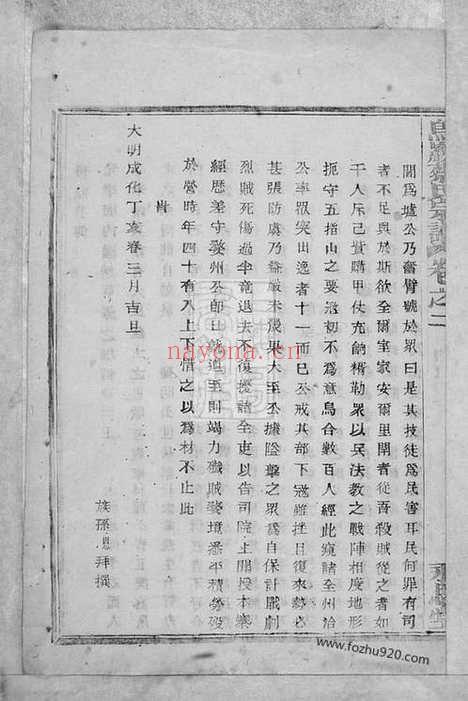 閭爲墟公乃奮臂號於眾曰是其技徒爲民害耳民何罪有司
者不足與於斯欲全爾室家安爾里閈者從吾殺賊從之者如
千人斥己貲購甲仗充餉糈勒眾以兵法教之戰陣相度地形
扼守五指山之要冦初不爲意烏合數百人經此窺諸全州冶
公率眾突出逸者十一而巳公戒其部下冦雖挫日復來勢必
甚張防處乃益嚴未幾果大至公據險擊之眾爲自保計戰劇
烈賊死傷過半竟退去不復擾諸全吏以告司院上開授本寨
經歷差守婺州公即日就道至則竭力殲賊婺境悉平積勞歿
於營時年四十有八上下惜之以爲材不止此
旹
大明成化丁亥春三月吉旦
族孫 拜撰
氏宗譜
卷之二
nayona.cn
www.fozhu920.com